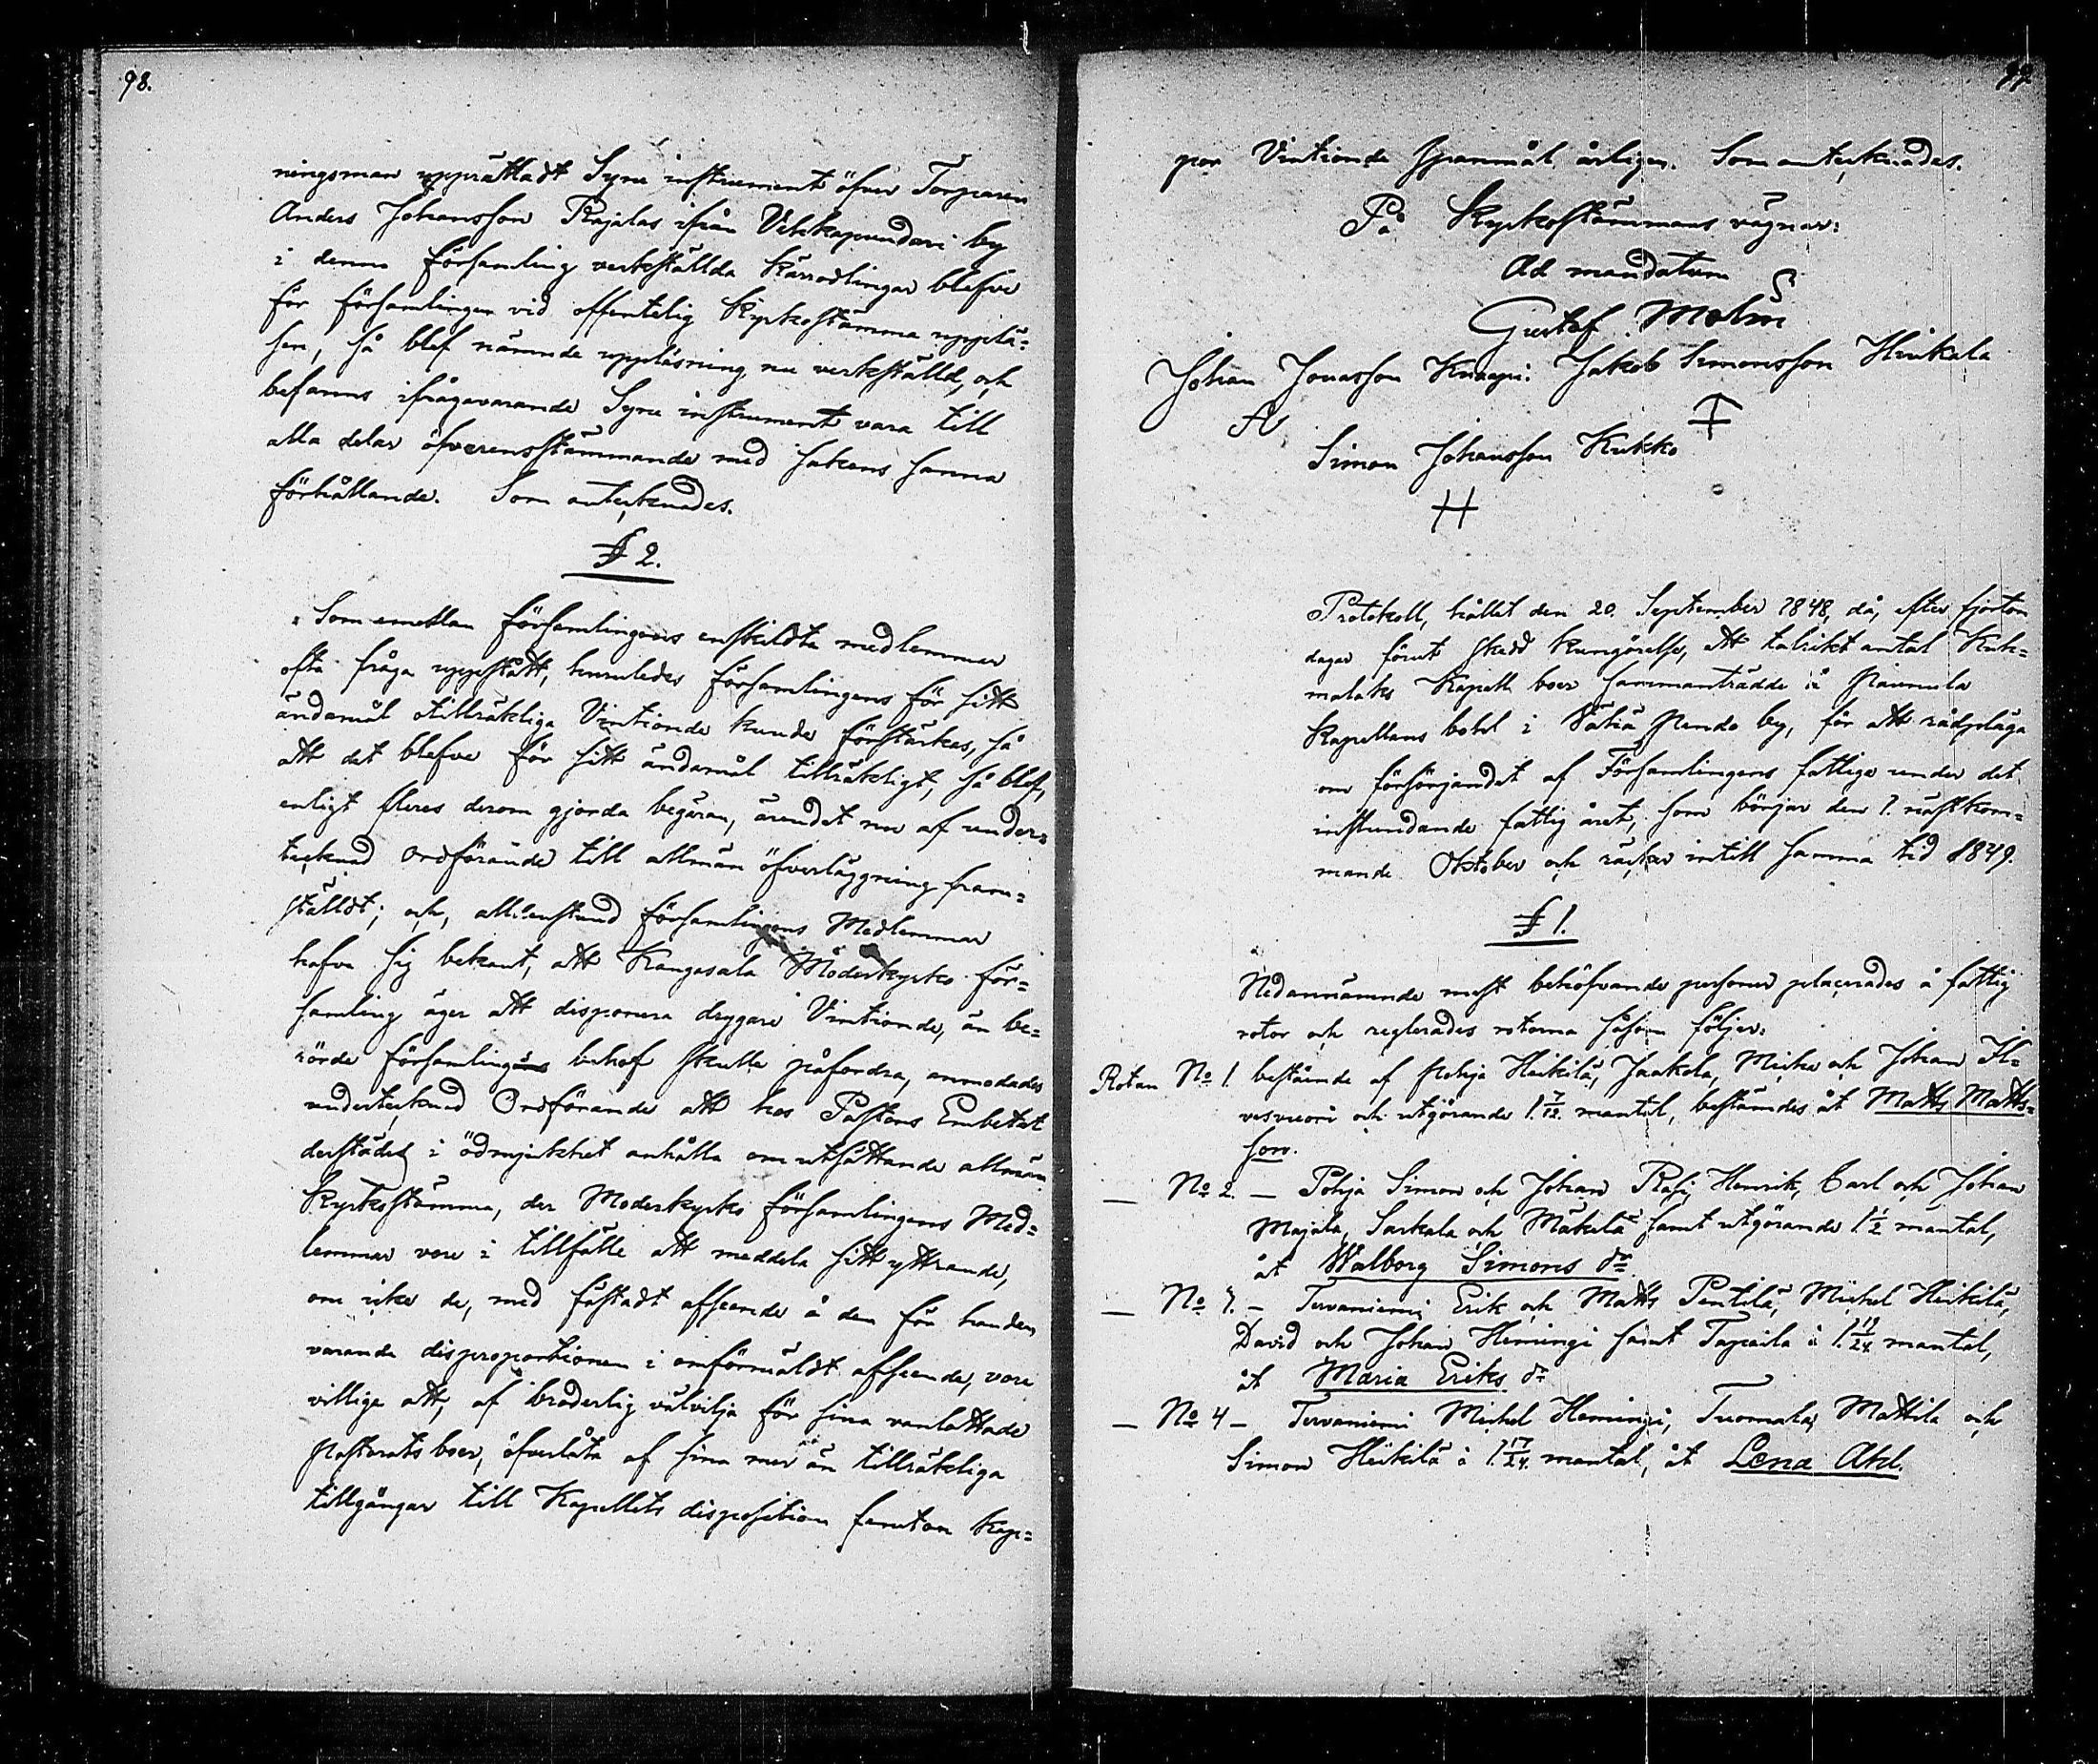 98.
ningsman upprättadt Syne instrument öfver Torparen
Anders Johansson Rajalas ifrån Vehkapundari by
i denna församling verkställda kärrodlingar blefve
för församlingen vid offentelig Kyrkostämma upplä=
sen, så blef nämnde uppläsning nu verkställd, och
befanns ifrågavarande Syne instrument vara till
alla delar öfverensstämmande med sakens sanna
förhållande. Som antecknades.
§ 2.
Som emellan församlingens enskildta medlemmar
ofta fråga uppstått, huruledes församlingens för sitt
ändamål otillräkliga Vintionde kunde förstärkas, så
att det blefve för sitt ändamål tillräkligt, så blef,
enligt fleres derom gjorda begäran, ärendet nu af under=
tecknad Ordförande till allmän öfverläggning fram=
stäldt; och, alldenstund församlingens Medlemmar
hafva sig bekant, att Kangasala Moderkyrko för=
samling äger att disponera drygare Vintionde, än be=
rörde församlings behof skulle påfordra, anmodades
undertecknad Ordförande att hos Pastors Embetet
derstädes i ödmjukhet anhålla om utsättande allmän
Kyrkostämma, der Moderkyrko församlingens Med=
lemmar vore i tillfälle att meddela sitt yttrande,
om icke de, med fästadt afseende å den för handen
varande disproportionen i omförmäldt afseende, vore
villige att, af broderlig välvilja för sina vanlottade
Pastorats boer, öfverlåta af sina mer än tillräkliga
tillgångar till Kapellets disposition femton kap=
99
par Vintionde Spanmål årligen. Som antecknades.
På Kyrkostämmans vägnar:
Ad mandatum
Gustaf Malm
Johan Jonasson Knaapi. Jakob Simonsson Hinkala
Simon Johansson Kukko
Protokoll, hållet den 20. September 1848, då, efter fjorton
dagar förut skedd kungörelse, ett talrikt antal Kuh=
malahs Kapell boer sammanträdde å Pännula
Kapellans bohl i Vähä Pendo by, för att rådpläga
om försörjandet af Församlingens fattiga under det
instundande fattig året, som börjar den 1. nästkom=
mande Oktober och räcker intill samma tid 1849.
§ 1.
Nedannämnde mest behöfvande personer placerades å fattig
rotor och reglerades rotorna såsom följer:
Rotan No 1. bestående af Pohja Heikilä, Jaakola, Micko och Johan Il=
vesvuori och utgörande 1 7/12. mantal, bestämdes åt Matts Matts=
son.
— No 2. — Pohja Simon och Johan Rasi, Henrik, Carl och Johan
Majala, Sarkala och Mäkelä samt utgörande 1 1/2 mantal,
åt Walborg Simons dr.
— No 3. — Tervaniemi Erik och Matts Pentilä, Michel Heikilä,
David och Johan Hemingi samt Tapaila à 1. 19/24. mantal,
åt Maria Eriks dr
— No 4 — Tervaniemi Michel Hemingi, Tuomala, Mattila och
Simon Heikilä à 1. 17/24. mantal, åt Lena Ahl.